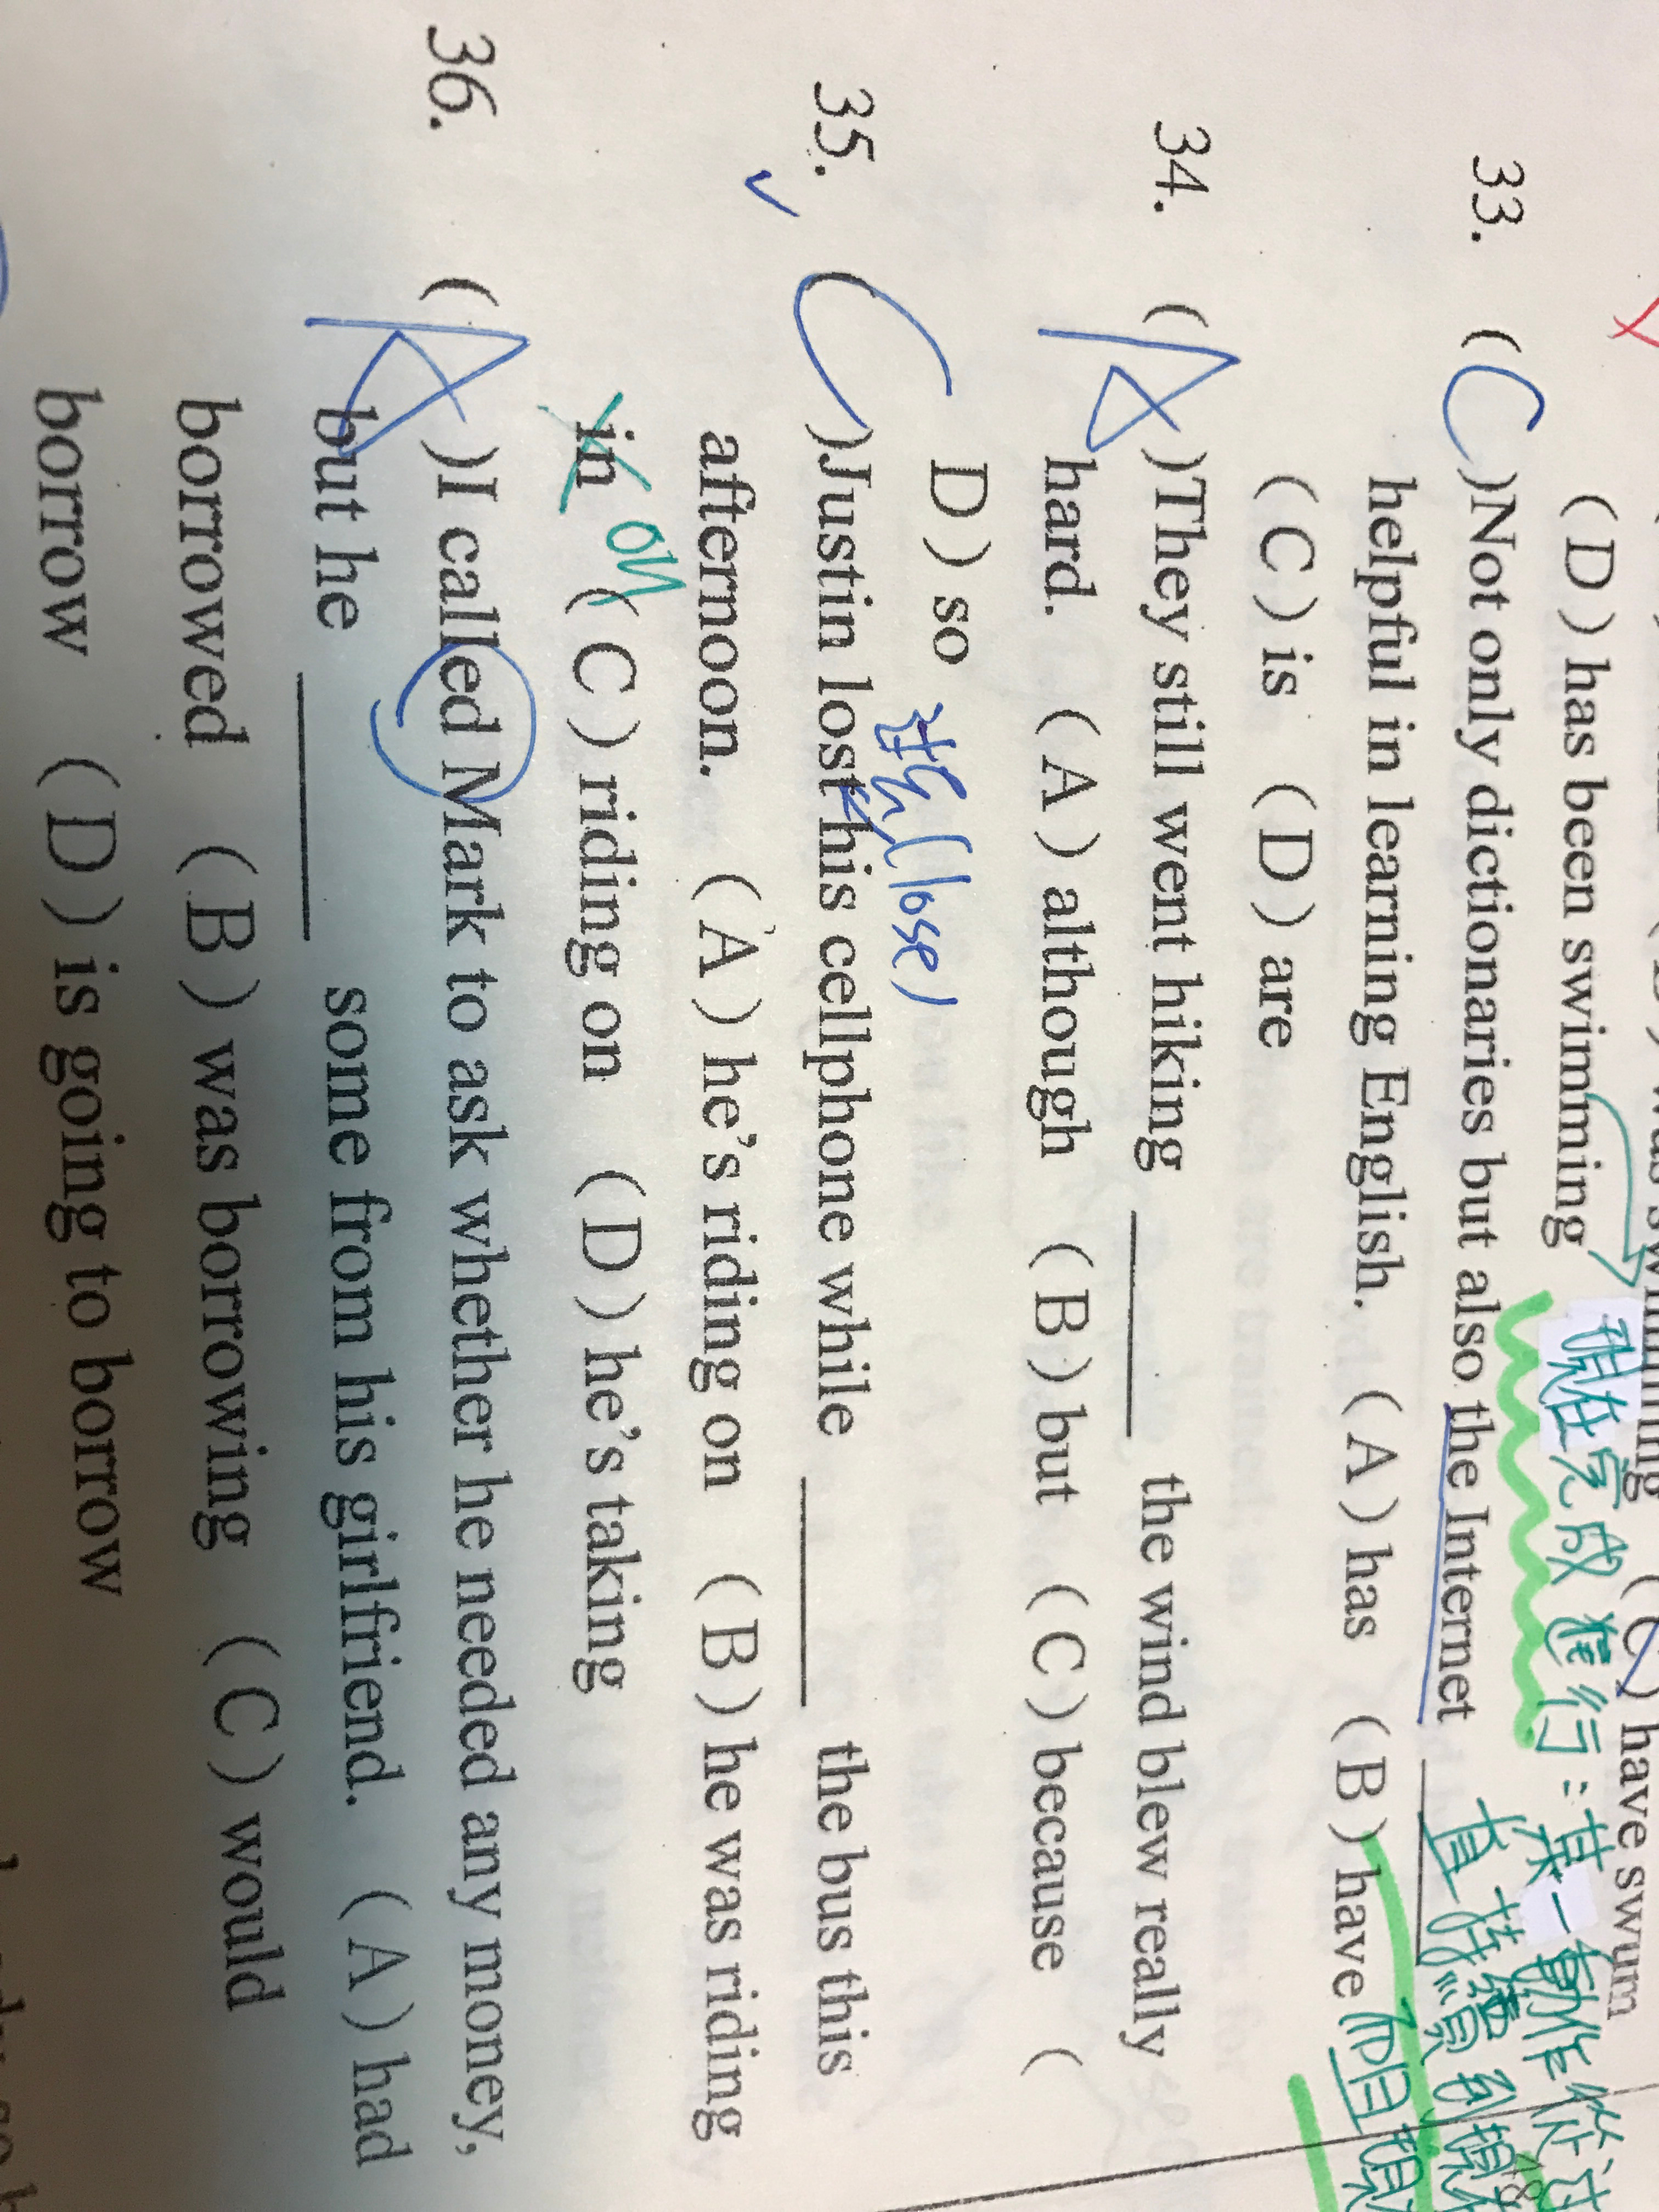 (D) has been swimming
現在完成進行:某一動作從過
直持續到現在
33. (C)Not only dictionaries but also the Internet ______
helpful in learning English. (A) has (B) have
(C) is (D) are
34. (A)They still went hiking ______ the wind blew really
hard. (A) although (B) but (C) because (
D) so
過(lose)
35. (C)Justin lost his cellphone while ______ the bus this
afternoon. (A) he's riding on (B) he was riding
in on (C) riding on (D) he's taking
36. (A)I called Mark to ask whether he needed any money,
but he ______ some from his girlfriend. (A) had
borrowed (B) was borrowing (C) would
borrow (D) is going to borrow